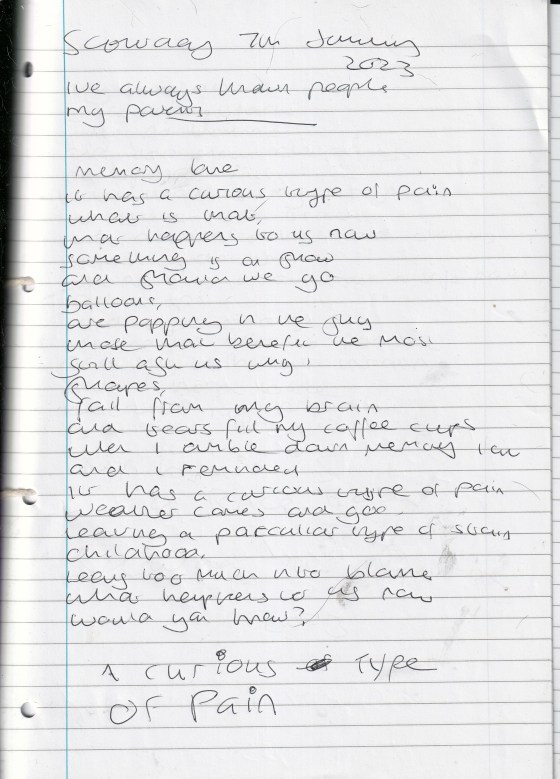 Saturday 7th January
2023
ive always known people
my parents
memory lane
it has a curious type of pain
what is that,
what happens to us now
something is on show
and where we go
balloons,
are popping in the sky
those that benefit the most
still ask us why
shapes,
fall from my brain
and tears fill my coffee cups
when I amble down memory lane
and i reminded
it has a curious type of pain
weather comes and goes
leaving a peculiar type of stain
childhood,
too much into blame
what happens to us now
would you know?
A curious type
of pain